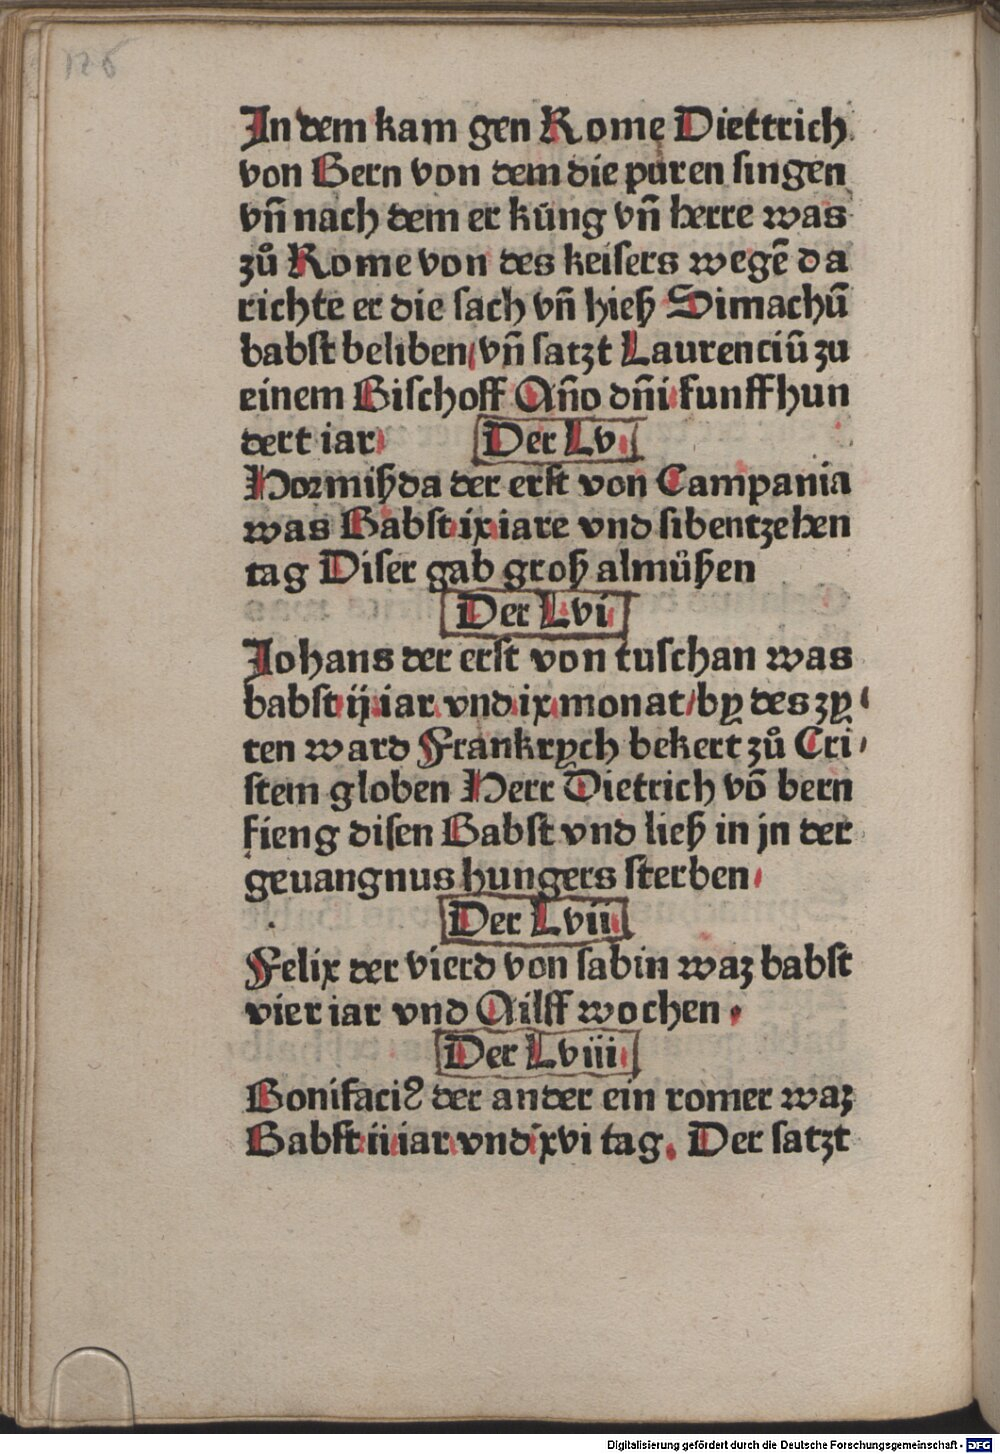 126
In dem kam gen Rome Diettrich
von Bern von dem die puren singen
vn̄ nach dem er kúng vn̄ herre was
zů Rome von des keisers wegē da
richte er die sach vn̄ hieß Simachū
babſt beliben/ vn̄ satzt Laurenciū zu
einem Biſchoff Año dñi funffhun
dert iar
Der Lv.
Hormißda der erſt von Campania
was Babſt ix iare vnd ſibentzehen
tag Diſer gab groß almůßen
Der Lvi
Johans der erſt von tuſchan was
babſt ij iar vnd ix monat/ by des zy
ten ward Frankrych bekert zů Cri/
ſtem globen Herr Dietrich vō bern
fieng diſen Babſt vnd ließ in jn der
geuangnus hungers ſterben
Der Lvii
Felix der vierd von ſabin waz babſt
vier iar vnd Ailff wochen.
Der Lviii
Bonifaciꝰ der ander ein romer waz
Babſt ii iar vnd xvi tag. Der ſatzt
Digitalisierung gefördert durch die Deutsche Forschungsgemeinschaft - DFG